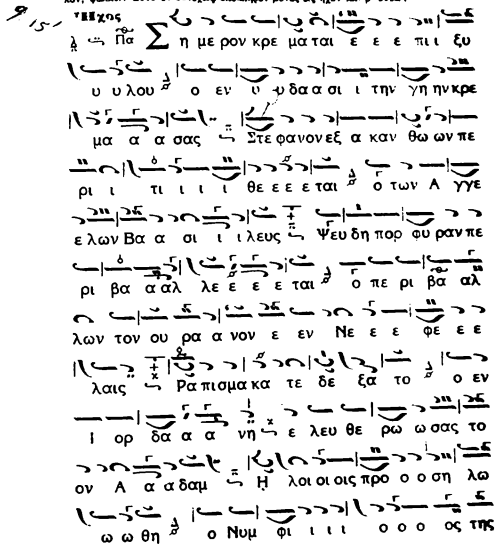 Ἦχος
Πα Σ η με ρον κρε μα ται ε ε ε πι ι ξυ
υ υ λου ο εν υ υ δα α σι ι την γη ην κρε
μα α α σας Στε φα νον εξ α καν θω ων πε
ρι ι τι ι ι ι θε ε ε ε ται ο των Α γγε
ε λων Βα α σι ι ι λευς Ψευ δη πορ φυ ραν πε
ρι βα α αλ λε ε ε ε ται ο πε ρι βα αλ
λων τον ου ρα α νον ε εν Νε ε ε φε ε ε
λαις Ρα πισ μα κα τε δε ξα το ο εν
Ι ορ δα α α νη ε λευ θε ρω ω σας το
ον Α α α δαμ Η λοι οι οις προ ο ο ση λω
ω ω θη ο Νυμ φι ι ι ι ο ο ο ος της